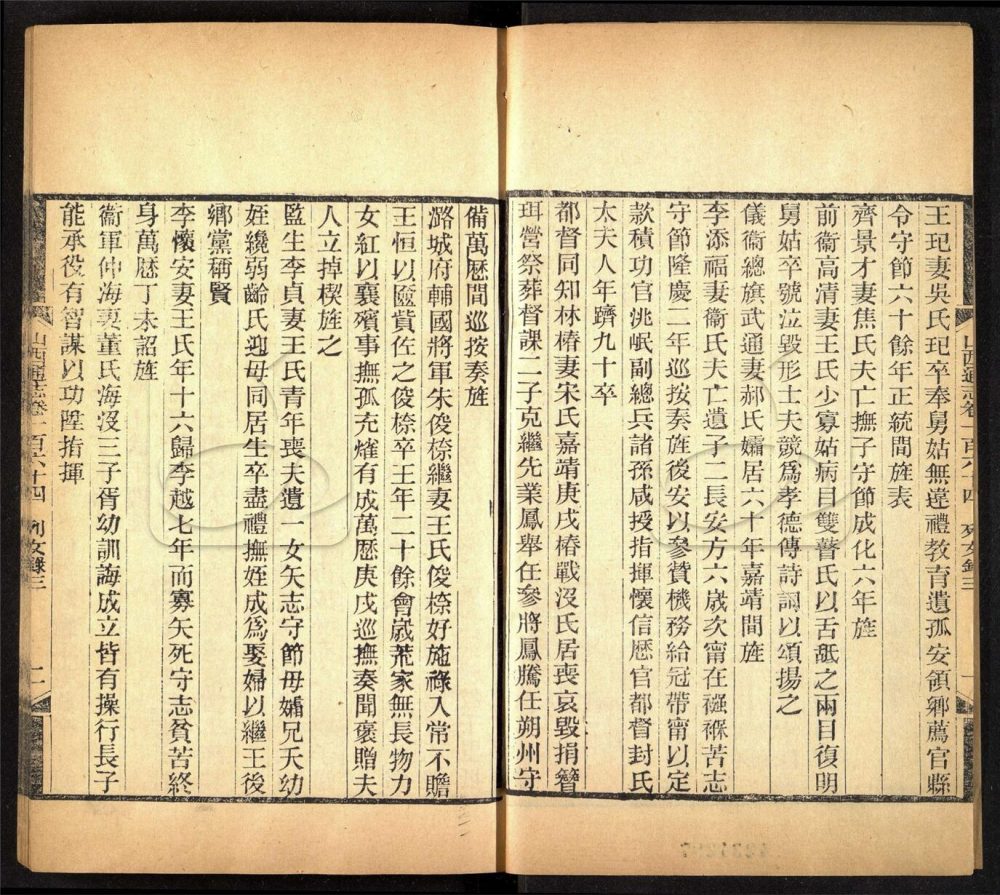 王玘妻吳氏玘卒奉舅姑無違禮教育遺孤安領鄉薦官縣
令守節六十餘年正統間旌表
齊景才妻焦氏夫亡撫子守節成化六年旌
前衞高清妻王氏少寡姑病目雙瞽氏以舌舐之兩目復明
舅姑卒號泣毀形士夫競爲孝德傳詩詞以頌揚之
儀衞總旗武通妻郝氏孀居六十年嘉靖間旌
李添福妻衞氏夫亡遺子二長安方六歲次甯在襁褓苦志
守節隆慶二年巡按奏旌後安以參贊機務給冠帶甯以定
款積功官洮岷副總兵諸孫咸授指揮懷信歷官都督封氏
太夫人年躋九十卒
都督同知林椿妻宋氏嘉靖庚戌椿戰沒氏居喪哀毀捐簪
珥營祭葬督課二子克繼先業鳳舉任參將鳳騰任朔州守
山西通志卷一百六十四 列女錄三 一
備萬歷間巡按奏旌
潞城府輔國將軍朱俊㮛繼妻王氏俊㮛好施祿入常不贍
王恒以匳貲佐之俊㮛卒王年二十餘會歲荒家無長物力
女紅以襄殯事撫孤充燿有成萬歷庚戌巡撫奏聞褒贈夫
人立掉楔旌之
監生李貞妻王氏青年喪夫遺一女矢志守節母孀兄夭幼
姪纔弱齡氏迎母同居生卒盡禮撫姪成爲娶婦以繼王後
鄉黨稱賢
李懷安妻王氏年十六歸李越七年而寡矢死守志貧苦終
身萬歷丁未詔旌
衞軍仲海妻董氏海沒三子胥幼訓誨成立皆有操行長子
能承役有智謀以功陞指揮
山西通志卷一百六十四 列女錄三 二